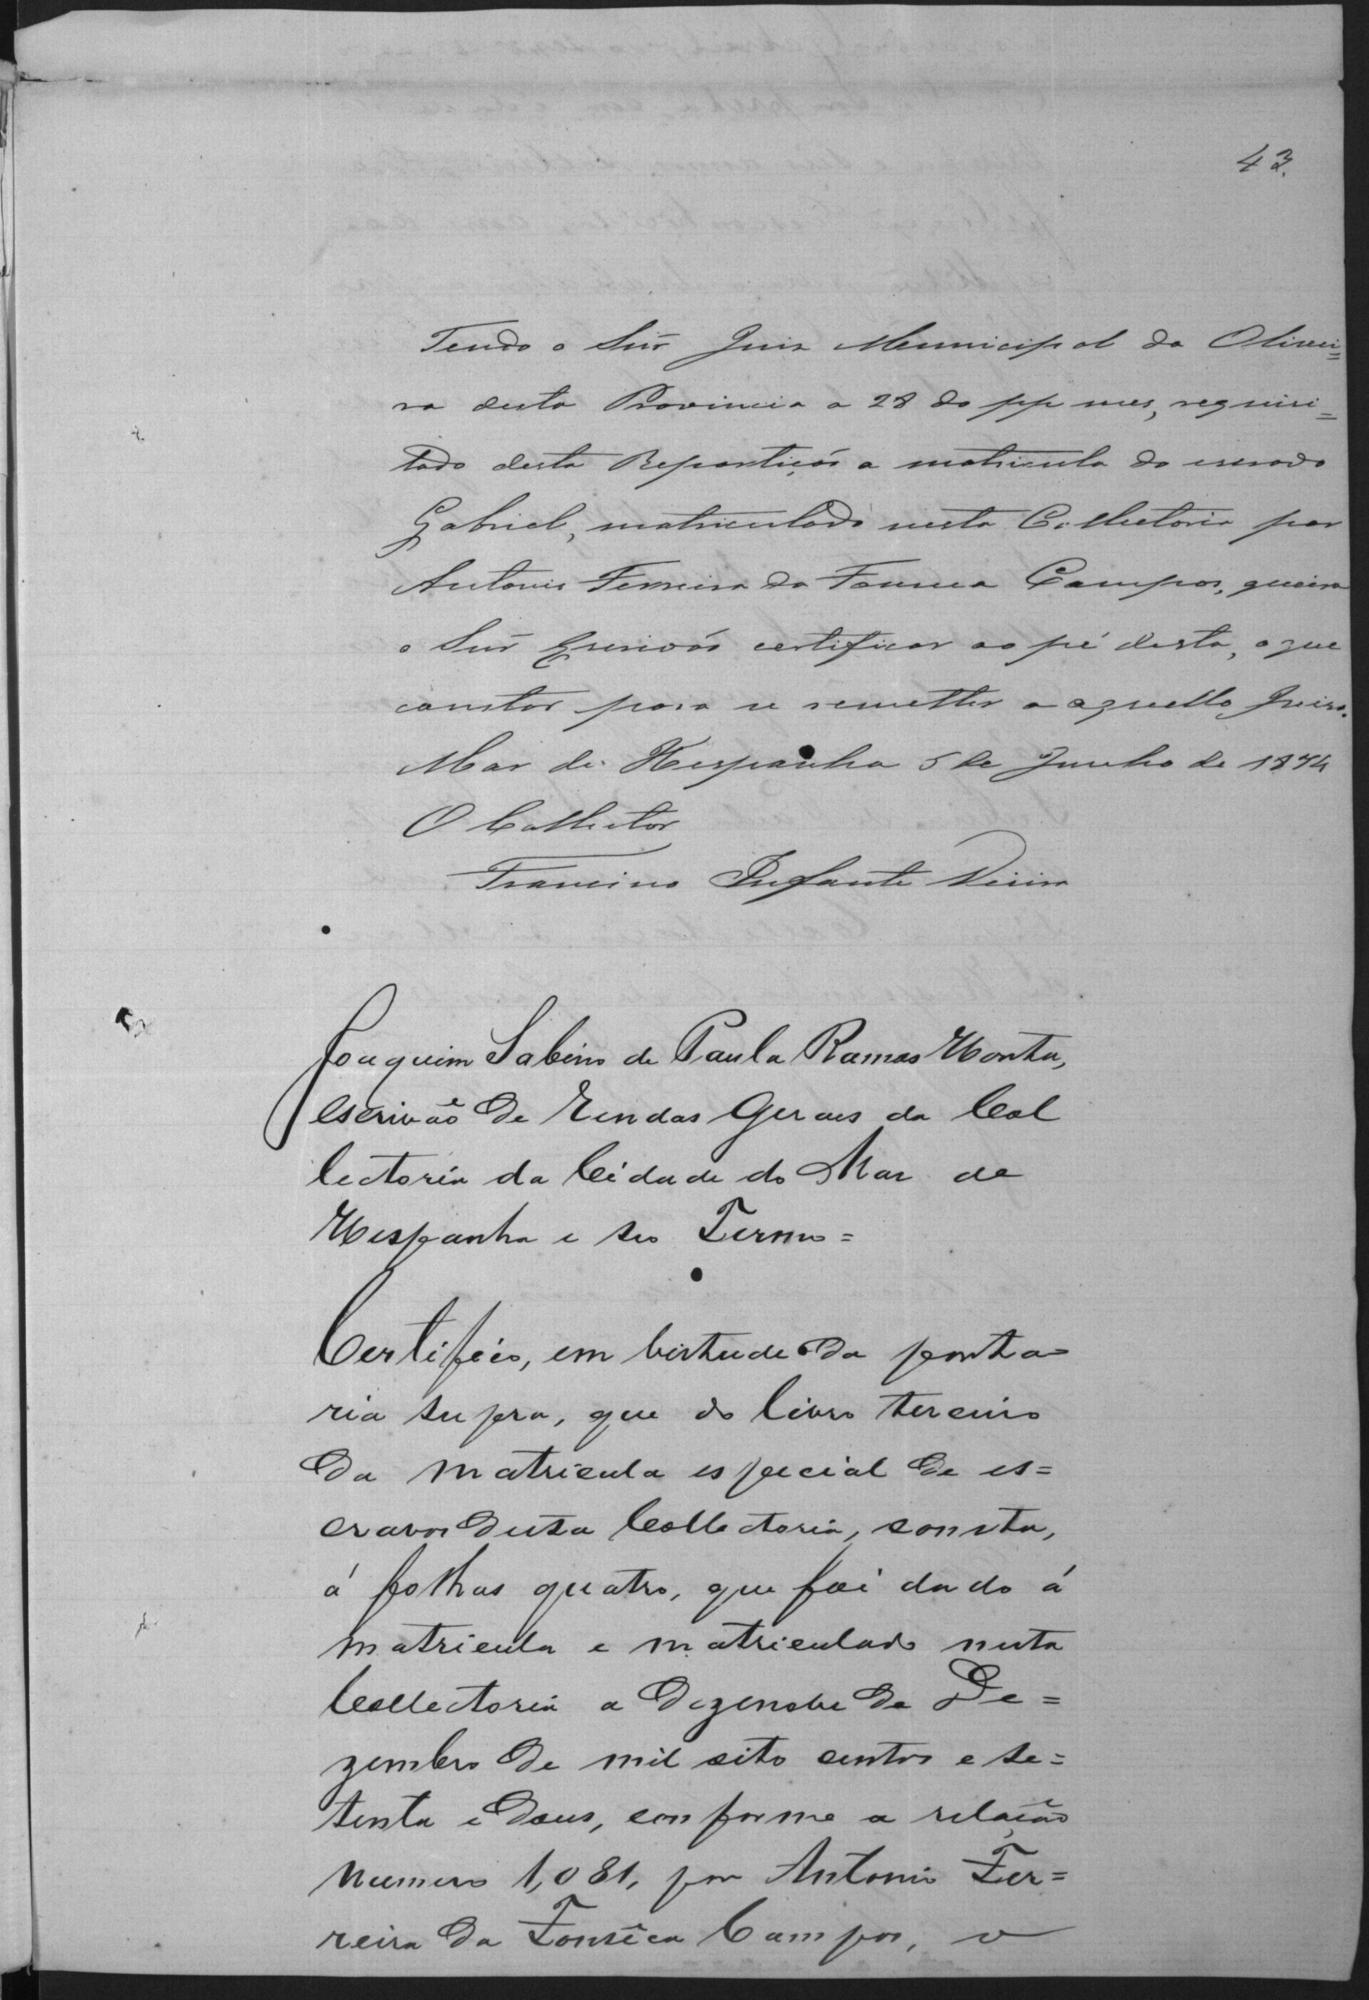 43.
Tendo o Snr̃ Juiz Municipal da Olivei=
ra desta Provincia a 28 do pp mes, requisi=
tado desta Repartição a matricula do escravo
Gabriel, matriculado nesta Collectoria por
Antonio Ferreira da Fonseca Campos, queira
o Snr̃ Escrivão certificar ao pé desta, o que
constar para se remetter a aquelle Juizo.
Mar de Hespanha 5 de Junho de 1874
O Collector
Francisco Infante Vieira
Joaquim Sabino de Paula Ramos Horta,
escrivão de Rendas Geraes da Col
lectoria da Cidade do Mar de
Hespanha e seo Termo=
Certifico, em virtude da porta=
ria supra, que do livro terceiro
da matricula especial de es=
cravos desta Collectoria, consta,
á folhas quatro, que foi dado á
matricula e matriculado nesta
Collectoria a dezenove de De=
zembro de mil oito centos e se=
tenta e dous, conforme a relação
numero 1,081, por Antonio Fer=
reira da Fonsêca Campos, o